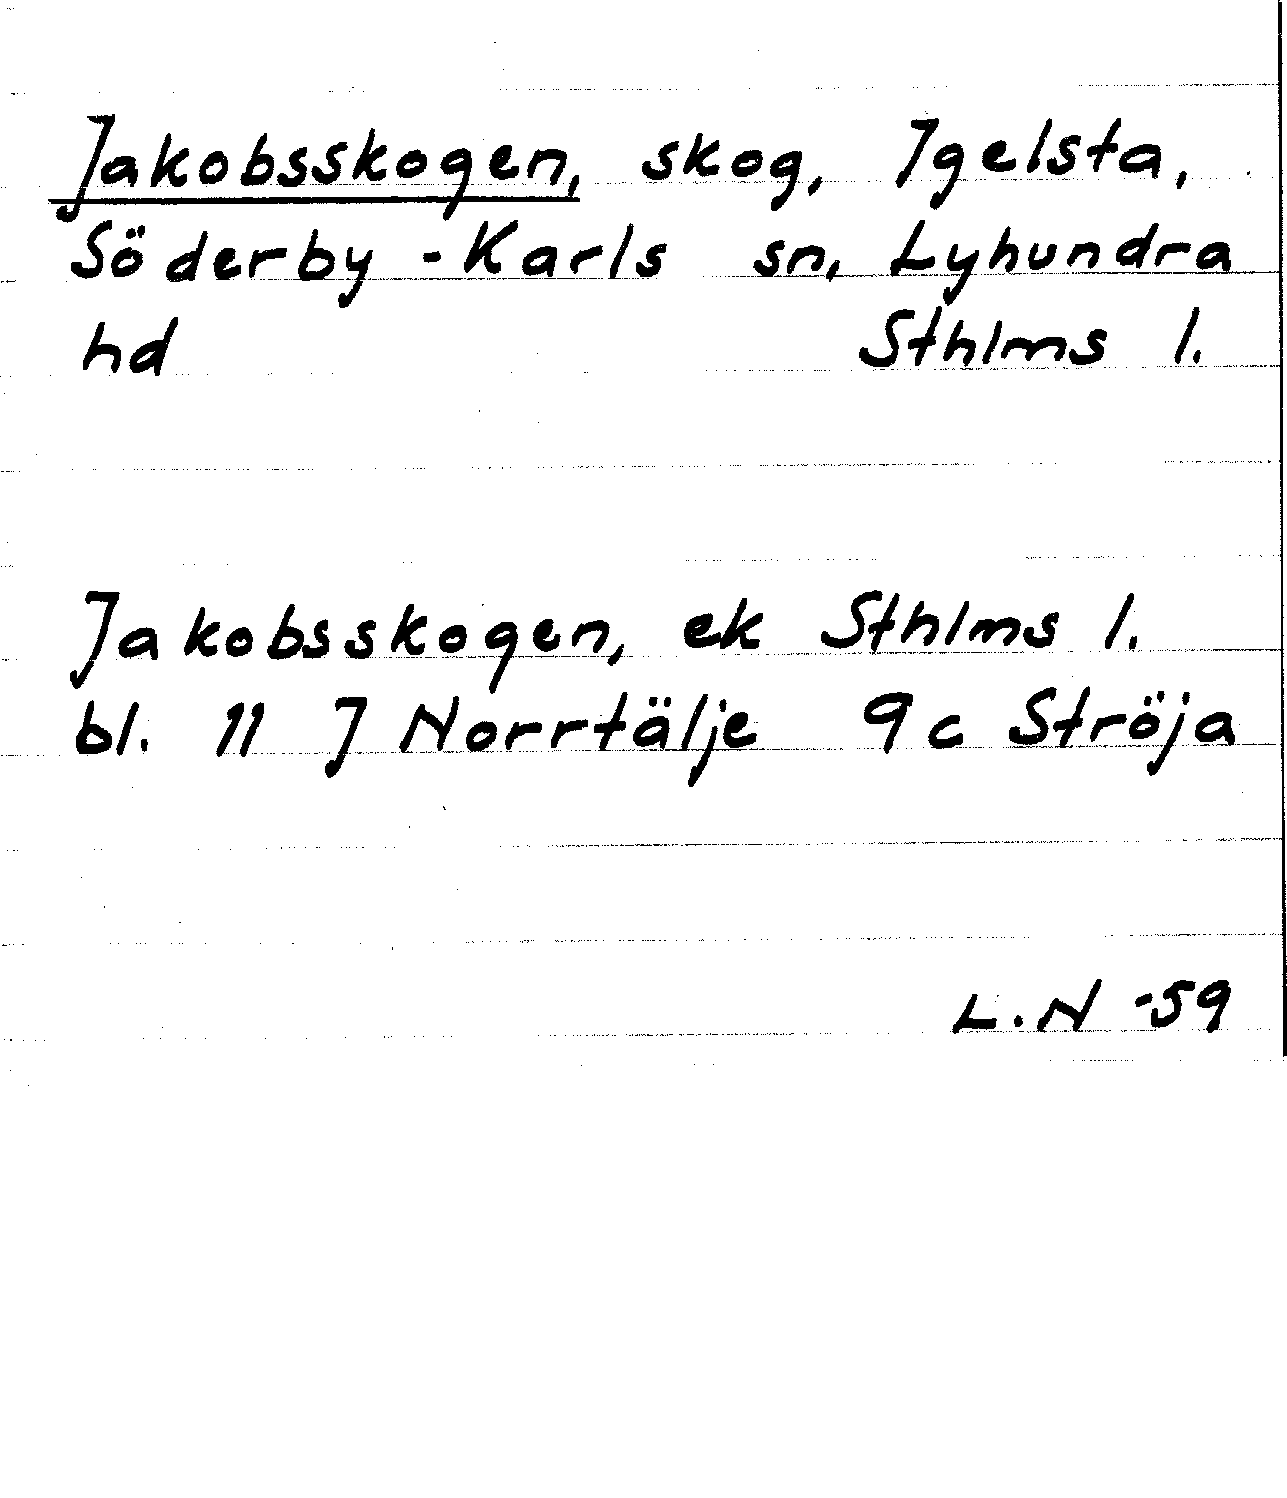 Jakobsskogen, skog, Igelsta,
Söderby-Karls sn, Lyhundra
hd Sthlms l.
Jakobsskogen, ek Sthlms l.
bl. 11 J Norrtälje 9c Ströja
L.N -59